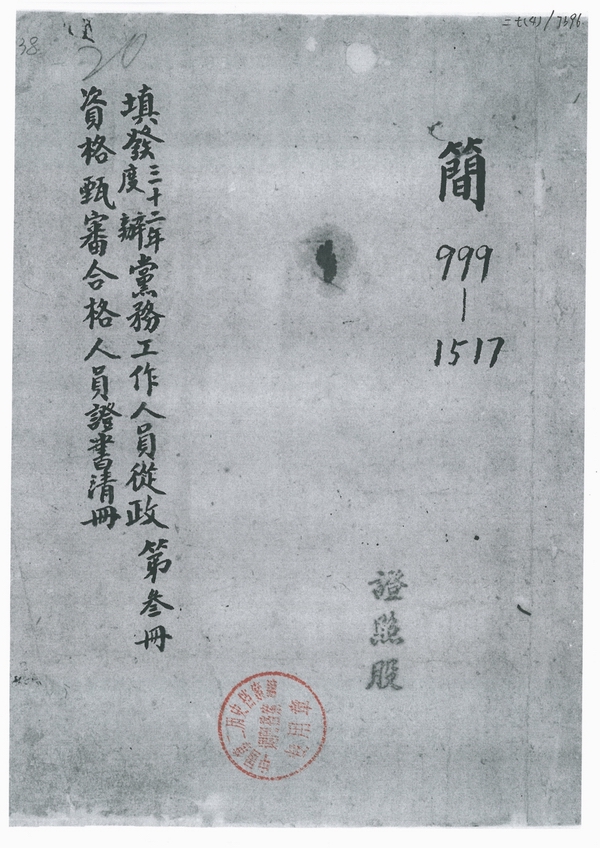 三七(4)/7396
38
20
簡
999
|
1517
證照股
填發三十二年度辦黨務工作人員從政
資格甄審合格人員證書清冊
第叁冊